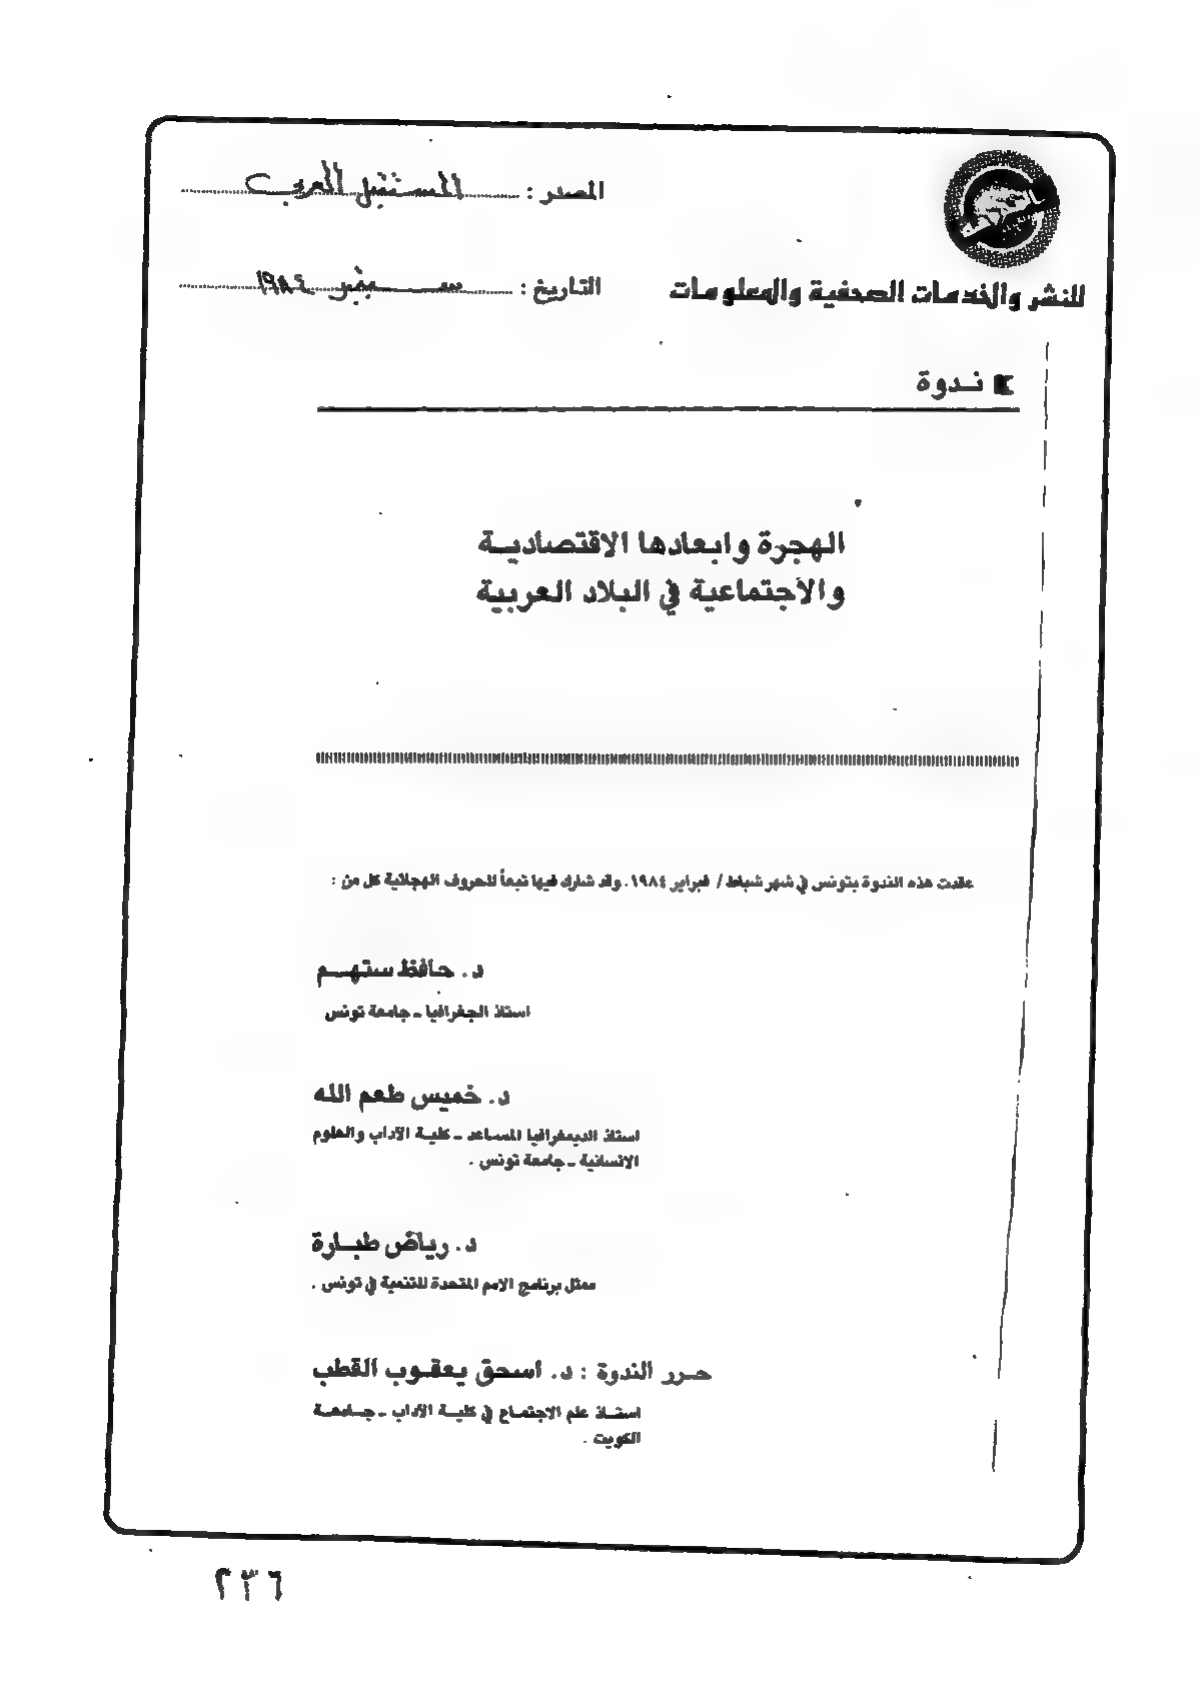 المصدر : المستقبل العربي
للنشر والخدمات الصحفية والمعلومات
التاريخ : سبتمبر ١٩٨٤
ندوة
الهجرة وابعادها الاقتصاديـة
والاجتماعية في البلاد العربية
عقدت هذه الندوة بتونس في شهر شباط / فبراير ١٩٨٤. وقد شارك فيها تبعاً للحروف الهجائية كل من :
د. حافظ ستهـم
استاذ الجغرافيا ـ جامعة تونس
د. خميس طعم الله
استاذ الديمغرافيا المساعد ـ كليـة الآداب والعلوم
الانسانية ـ جامعة تونس .
د. رياض طبـارة
ممثل برنامج الامم المتحدة للتنمية في تونس .
حـرر الندوة : د. اسحق يعقـوب القطب
استـاذ علم الاجتمـاع في كليـة الآداب ـ جـامعـة
الكويت .
٢٣٦